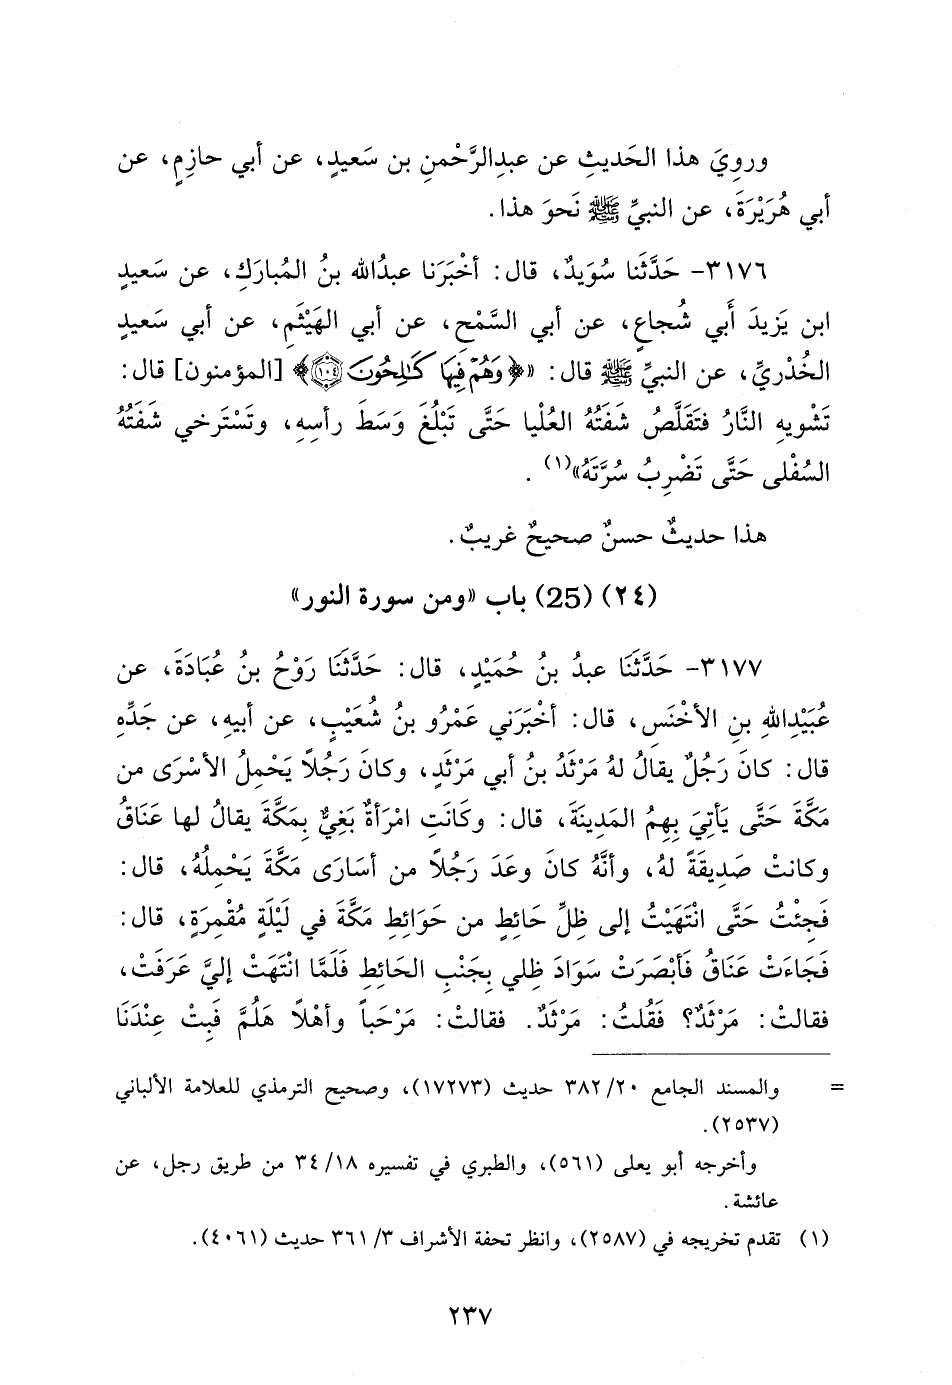 ورويَ هذا الحَديثِ عن عبدِالرَّحْمنِ بن سَعيدٍ، عن أبي حازِمٍ، عن
أبي هُرَيْرَةَ، عن النبيِّ ﷺ نَحوَ هذا.
٣١٧٦- حَدَّثَنا سُوَيدٌ، قال: أخْبَرَنا عبدُالله بنُ المُبارَكِ، عن سَعيدِ
ابن يَزيدَ أَبي شُجاعٍ، عن أبي السَّمْحِ، عن أبي الهَيْثَمِ، عن أبي سَعيدٍ
الخُدْريِّ، عن النبيِّ ﷺ قال: «﴿وَهُمْ فِيهَا كَٰلِحُونَ ١٠٤﴾ [المؤمنون] قال:
تَشْويهِ النَّارُ فتَقَلَّصُ شَفَتُهُ العُلْيا حَتَّى تَبْلُغَ وَسَطَ رأسِهِ، وتَسْتَرخي شَفَتُهُ
السُفْلى حَتَّى تَضْرِبُ سُرَّتَهُ»(١) .
هذا حديثٌ حسنٌ صحيحٌ غريبٌ.
(٢٤) (25) باب «ومن سورة النور»
٣١٧٧- حَدَّثَنَا عبدُ بنُ حُمَيْدٍ، قال: حَدَّثَنَا رَوْحُ بنُ عُبَادَةَ، عن
عُبَيْدِاللهِ بنِ الأخْنَسِ، قال: أخْبَرَني عَمْرُو بنُ شُعَيْبٍ، عن أبيه، عن جَدِّه
قال: كانَ رَجُلٌ يقالُ لهُ مَرْثَدُ بنُ أبي مَرْثَدٍ، وكانَ رَجُلاً يَحْمِلُ الأسْرَى من
مَكَّةَ حَتَّى يَأتِيَ بِهِمُ المَدِينَةَ، قال: وكَانَتِ امْرَأةٌ بَغِيٌّ بِمَكَّةَ يقالُ لها عَنَاقُ
وكانتْ صَدِيقَةً لهُ، وأنَّهُ كانَ وعَدَ رَجُلاً من أسَارَى مَكَّةَ يَحْمِلُهُ، قال:
فَجِئْتُ حَتَّى انْتَهَيْتُ إلى ظِلِّ حائِطٍ من حَوَائِطِ مَكَّةَ في لَيْلَةٍ مُقْمِرَةٍ، قال:
فَجَاءَتْ عَنَاقُ فَأبْصَرَتْ سَوَادَ ظِلي بِجَنْبِ الحَائِطِ فَلَمَّا انْتَهَتْ إليَّ عَرَفَتْ،
فقالتْ: مَرْثَدٌ؟ فَقُلتُ: مَرْثَدٌ. فقالتْ: مَرْحَباً وأهْلاً هَلُمَّ فَبِتْ عِنْدَنَا
= والمسند الجامع ٢٠/ ٣٨٢ حديث (١٧٢٧٣)، وصحيح الترمذي للعلامة الألباني
(٢٥٣٧).
وأخرجه أبو يعلى (٥٦١)، والطبري في تفسيره ١٨/ ٣٤ من طريق رجل، عن
عائشة.
(١) تقدم تخريجه في (٢٥٨٧)، وانظر تحفة الأشراف ٣/ ٣٦١ حديث (٤٠٦١).
٢٣٧